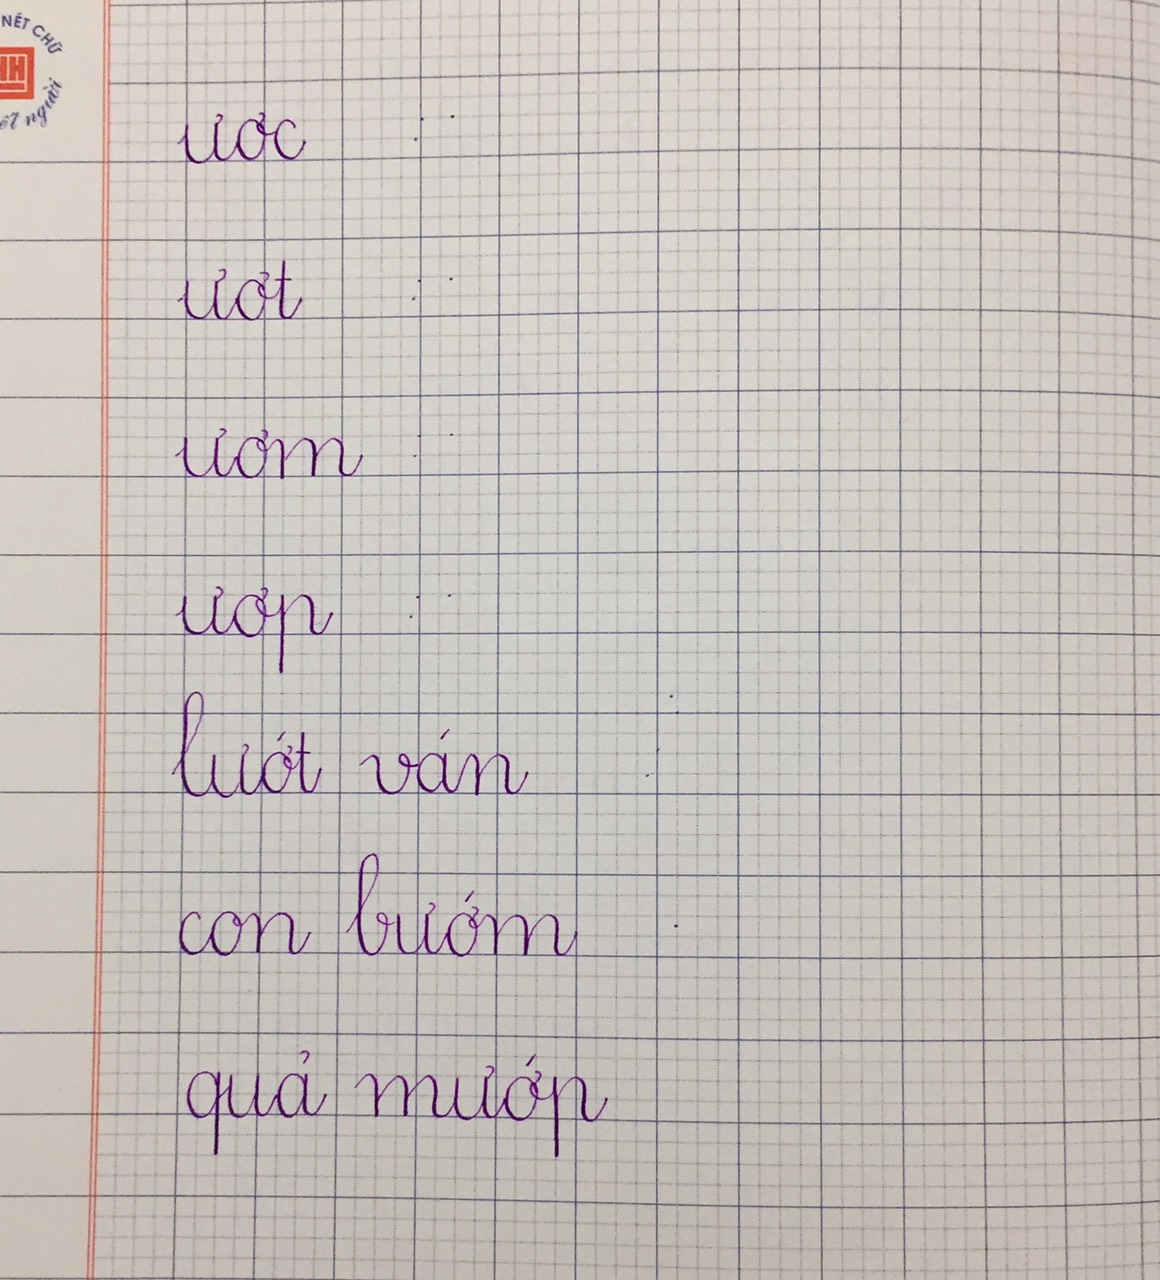 NÉT CHỮ
người
ươc
ươt
ươm
ươp
lướt ván
con bướm
quả mướp